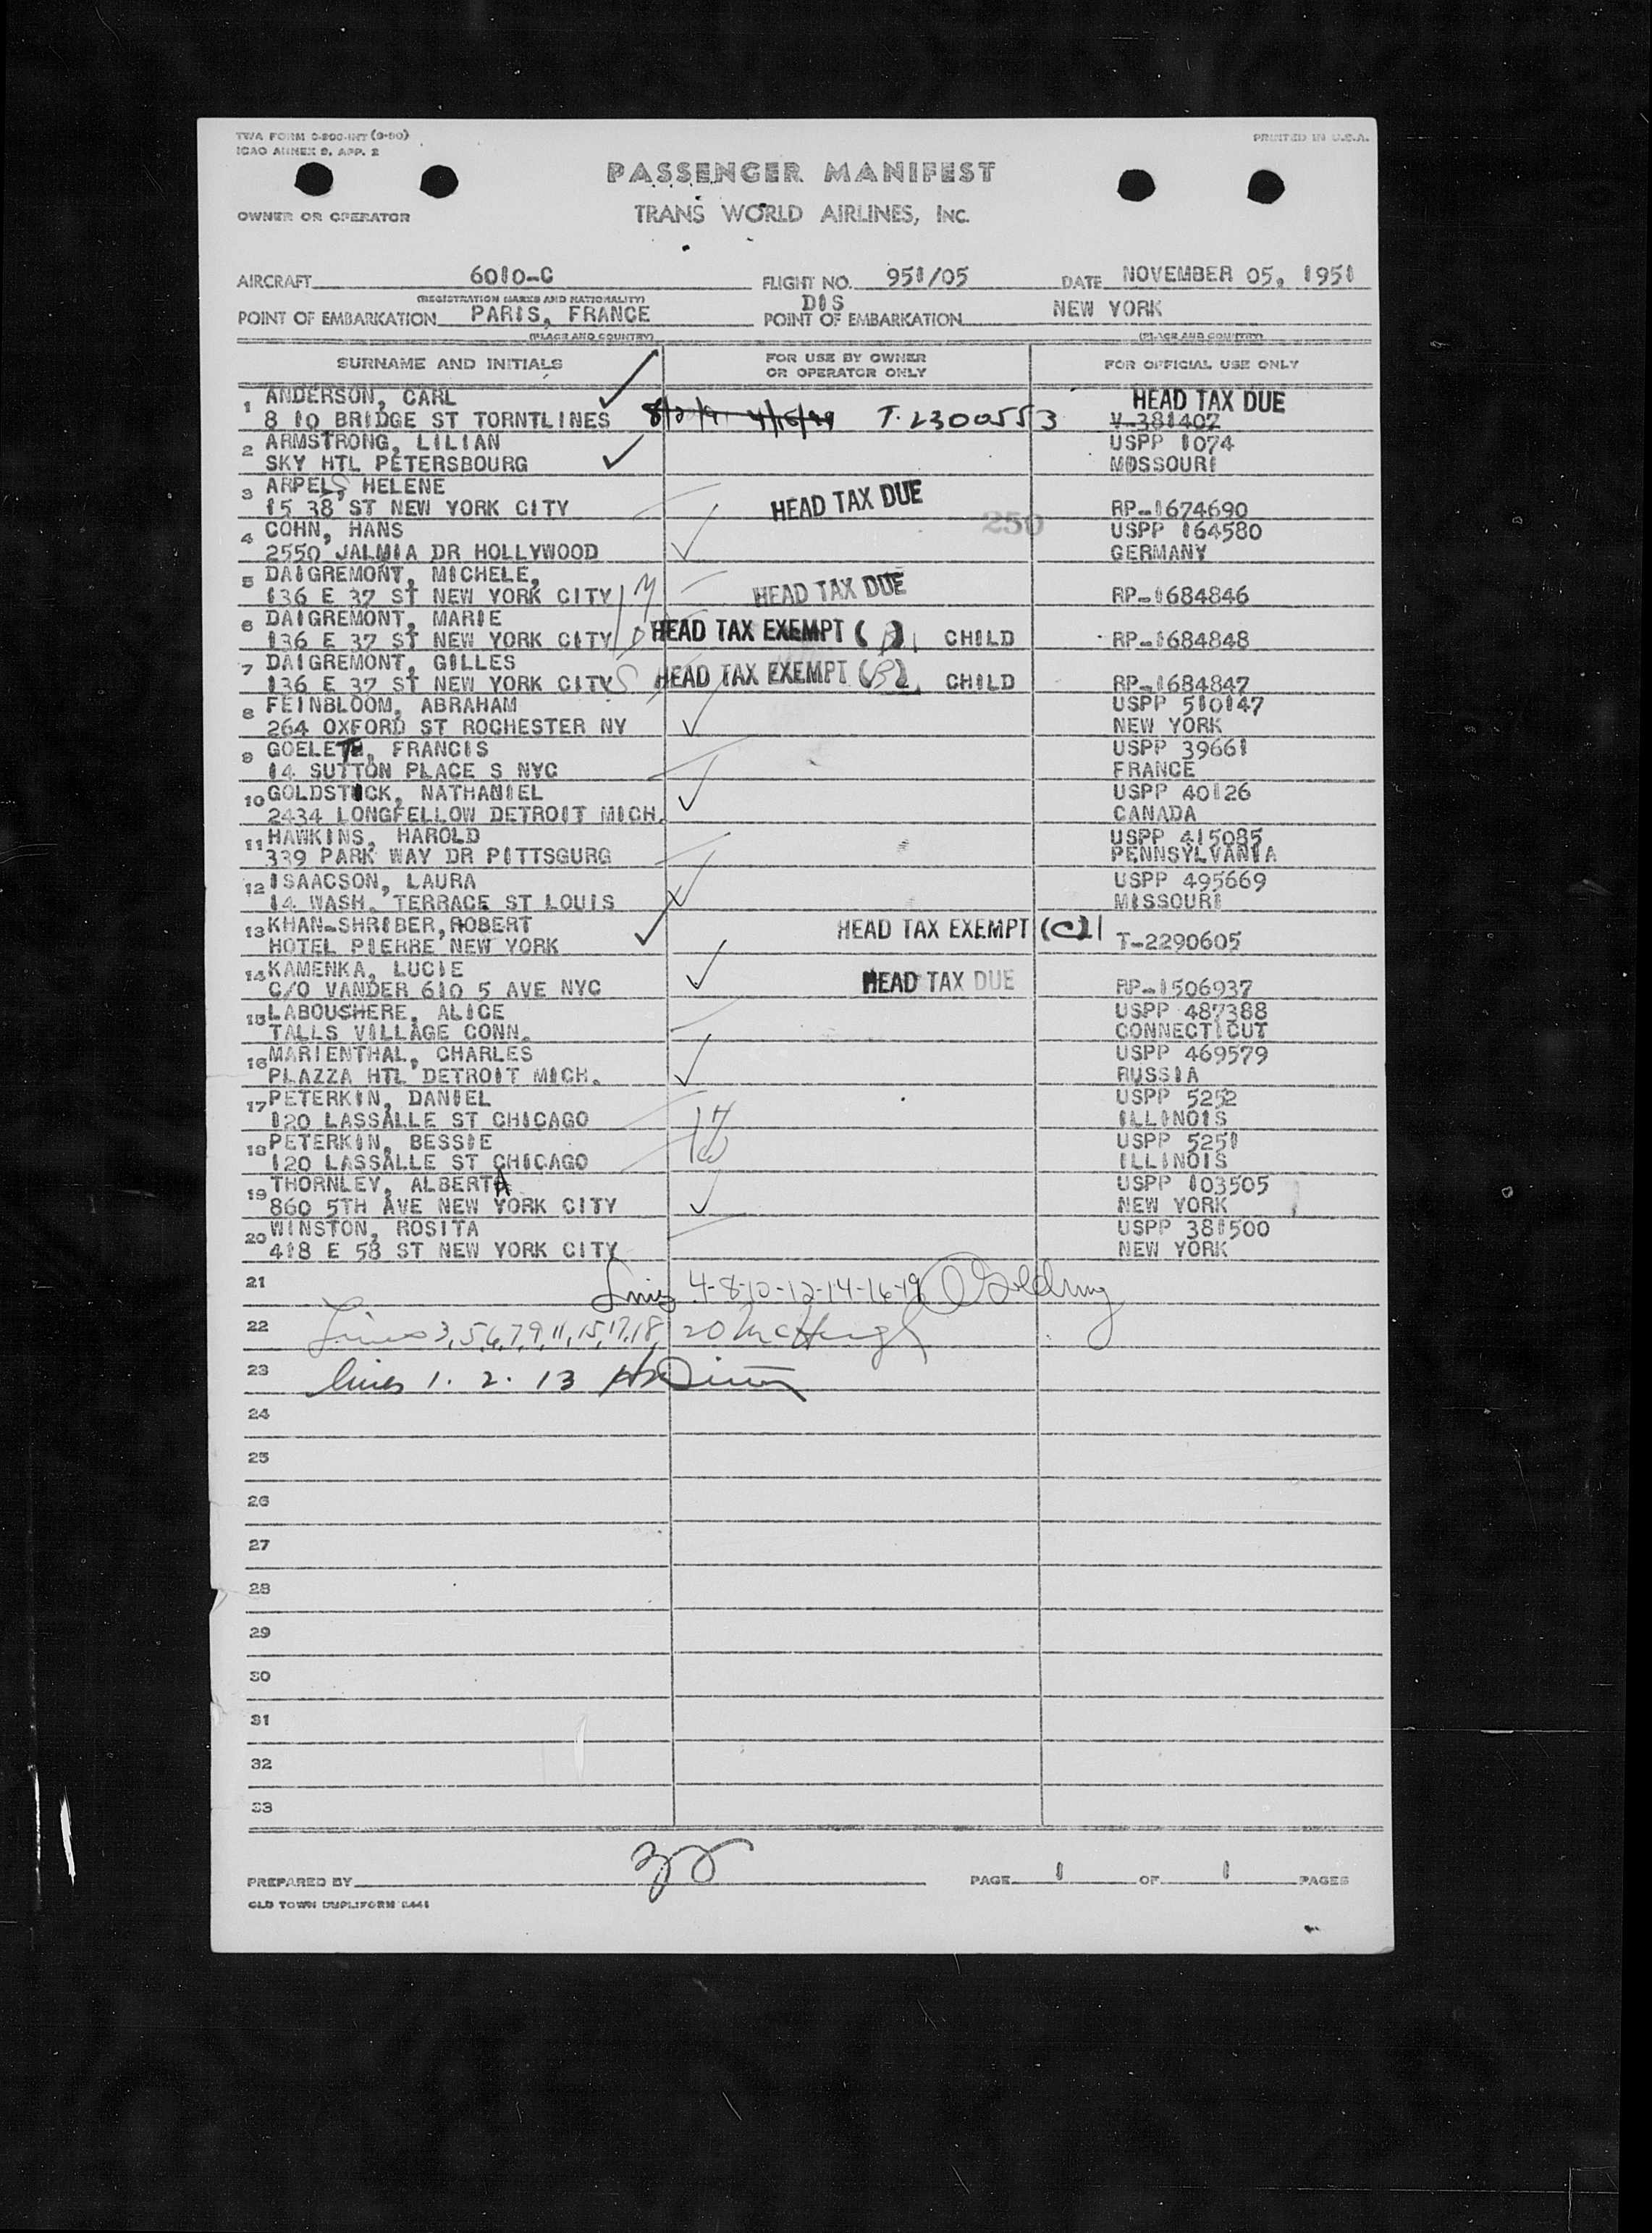 TWA FORM O-200-INT (9-50)
PRINTED IN U.S.A.
ICAO ANNEX 9, APP. 2
PASSENGER MANIFEST
OWNER OR OPERATOR
TRANS WORLD AIRLINES, INC.
AIRCRAFT 6010-C FLIGHT NO. 951/05 DATE NOVEMBER 05, 1951
(REGISTRATION MARKS AND NATIONALITY)
DIS
POINT OF EMBARKATION PARIS, FRANCE POINT OF EMBARKATION NEW YORK
(PLACE AND COUNTRY) (PLACE AND COUNTRY)
SURNAME AND INITIALS FOR USE BY OWNER OR OPERATOR ONLY FOR OFFICIAL USE ONLY
1 ANDERSON, CARL HEAD TAX DUE
8 10 BRIDGE ST TORNTLINES T-2300553 V-381407
2 ARMSTRONG, LILIAN USPP 1074
SKY HTL PETERSBOURG MOSSOURI
3 ARPELS, HELENE
15 38 ST NEW YORK CITY HEAD TAX DUE RP-1674690
250
4 COHN, HANS USPP 164580
2550 JALMIA DR HOLLYWOOD GERMANY
5 DAIGREMONT, MICHELE,
136 E 37 ST NEW YORK CITY M HEAD TAX DUE RP-1684846
6 DAIGREMONT, MARIE
136 E 37 ST NEW YORK CITY D HEAD TAX EXEMPT (B) CHILD RP-1684848
7 DAIGREMONT, GILLES
136 E 37 ST NEW YORK CITY S HEAD TAX EXEMPT (B) CHILD RP-1684847
8 FEINBLOOM, ABRAHAM USPP 510147
264 OXFORD ST ROCHESTER NY NEW YORK
9 GOELET, FRANCIS USPP 39661
14 SUTTON PLACE S NYC FRANCE
10 GOLDSTICK, NATHANIEL USPP 40126
2434 LONGFELLOW DETROIT MICH. CANADA
11 HAWKINS, HAROLD USPP 415085
339 PARK WAY DR PITTSGURG PENNSYLVANIA
12 ISAACSON, LAURA USPP 495669
14 WASH. TERRACE ST LOUIS MISSOURI
13 KHAN-SHRIBER, ROBERT HEAD TAX EXEMPT (C)
HOTEL PIERRE NEW YORK T-2290605
14 KAMENKA, LUCIE HEAD TAX DUE
C/O VANDER 610 5 AVE NYC RP-1506937
15 LABOUSHERE, ALICE USPP 487388
TALLS VILLAGE CONN. CONNECTICUT
16 MARIENTHAL, CHARLES USPP 469579
PLAZZA HTL DETROIT MICH. RUSSIA
17 PETERKIN, DANIEL USPP 5252
120 LASSALLE ST CHICAGO H ILLINOIS
18 PETERKIN, BESSIE USPP 5251
120 LASSALLE ST CHICAGO W ILLINOIS
19 THORNLEY, ALBERTA USPP 103505
860 5TH AVE NEW YORK CITY NEW YORK
20 WINSTON, ROSITA USPP 381500
418 E 58 ST NEW YORK CITY NEW YORK
21 Lines 4-8-10-12-14-16-19
22 Lines 3,5,6,7,9,11,15,17,18, 20 McHugh
23 lines 1. 2. 13
24
25
26
27
28
29
30
31
32
33
PREPARED BY PAGE 1 OF 1 PAGES
OLD TOWN DUPLIFORM